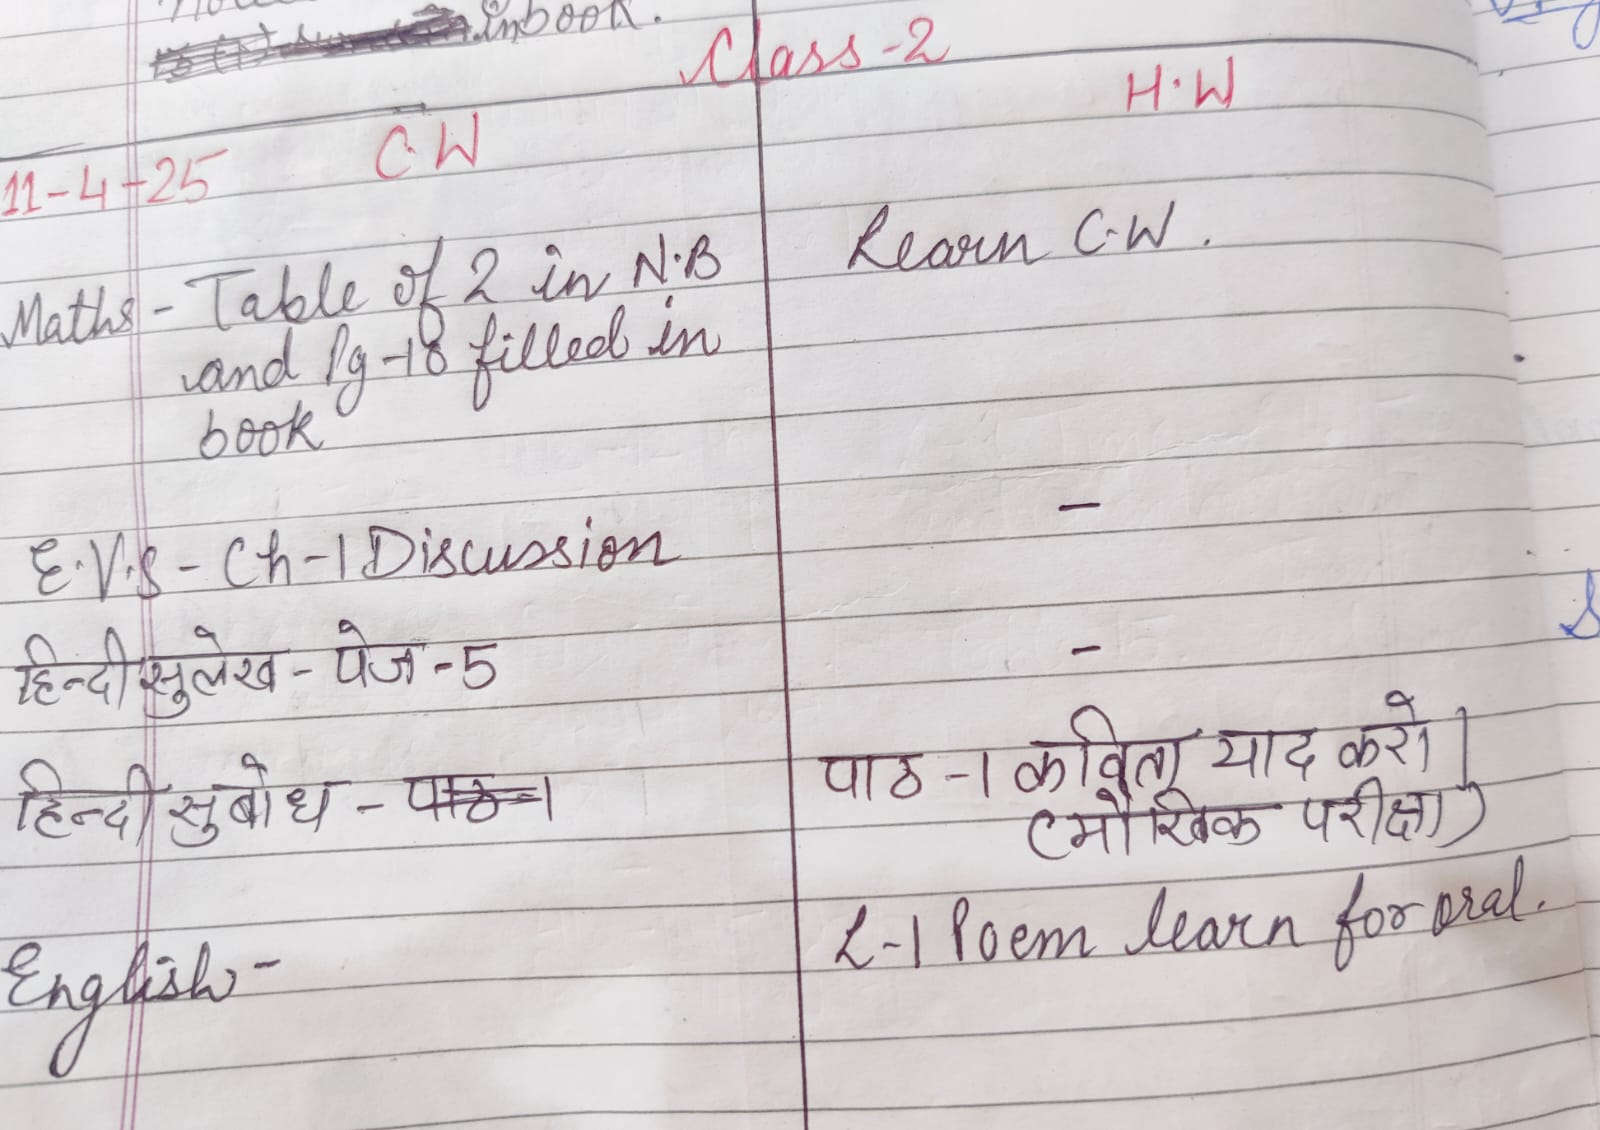 inbook.
Class-2
11-4-25 C.W H.W
Maths - Table of 2 in N.B Learn C.W.
and Pg-18 filled in
book
E.V.S - Ch-1 Discussion -
हिन्दी सुलेख - पेज -5 -
हिन्दी सुबोध - पाठ-1 पाठ -1 कविता याद करो।
(मौखिक परीक्षा)
English - L-1 Poem learn for oral.